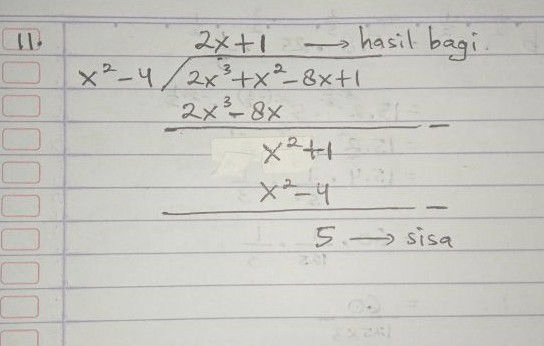 11. 2x+1 → hasil bagi.
x²-4 / 2x³+x²-8x+1
2x³-8x
x²+1
x²-4
5 → sisa